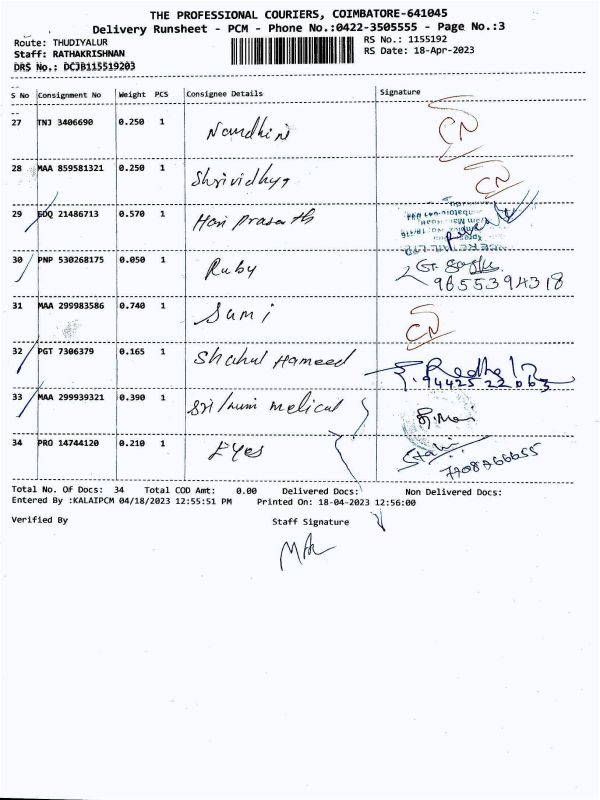 THE PROFESSIONAL COURIERS, COIMBATORE-641045
Delivery Runsheet - PCM - Phone No.:0422-3505555 - Page No.:3
Route: THUDIYALUR
RS No.: 1155192
Staff: RATHAKRISHNAN
RS Date: 18-Apr-2023
DRS No.: DCJB115519203
S No Consignment No Weight PCS Consignee Details Signature
27 TNJ 3406690 0.250 1 Nandhini CN
28 MAA 859581321 0.250 1 Shrividhya CN
29 EDQ 21486713 0.570 1 Hari Prasath
30 PNP 530268175 0.050 1 Ruby
9655394318
31 MAA 299983586 0.740 1 Sumi CN
32 PGT 7306379 0.165 1 Shahul Hameed
94425 22063
33 MAA 299939321 0.390 1 Melical
34 PRO 14744120 0.210 1 Eyes
Total No. Of Docs: 34 Total COD Amt: 0.00 Delivered Docs: Non Delivered Docs:
Entered By :KALAIPCM 04/18/2023 12:55:51 PM Printed On: 18-04-2023 12:56:00
Verified By Staff Signature